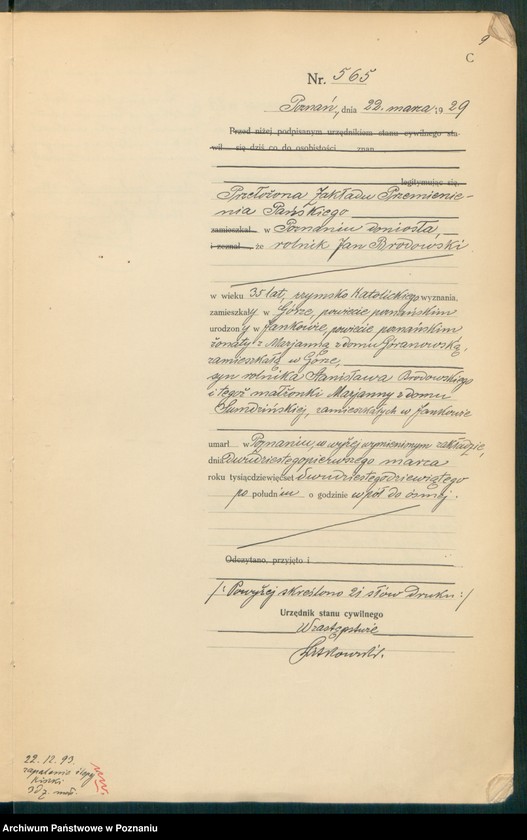 9
C
Nr. 565
Poznań, dnia 22. marca 1929
Przed niżej podpisanym urzędnikiem stanu cywilnego sta-
wił się dziś co do osobistości znan
legitymując się,
Przełożona Zakładu Przemienie-
nia Pańskiego
zamieszkał w Poznaniu doniosła,
i zeznał, że rolnik Jan Brodowski
w wieku 35 lat, rzymsko katolickiego wyznania,
zamieszkały w Górze, powiecie poznańskim
urodzony w Jankowie, powiecie poznańskim
żonaty z Marjanną z domu Góranowską,
zamieszkałą w Górze,
syn rolnika Stanisława Brodowskiego
i tegoż małżonki Marjanny z domu
zamieszkałych w Jankowie
umarł w Poznaniu, w wyżej wymienionym zakładzie,
dnia dwudziestegopierwszego marca
roku tysiącdziewięćset dwudziestegodziewiątego
po południu o godzinie wpół do ósmej.
Odczytano, przyjęto i
/: Powyżej skreślono 21 słów druku :/
Urzędnik stanu cywilnego
W zastępstwie
22. 12. 93.
zapalenie ślepej
kiszki
Archiwum Państwowe w Poznaniu